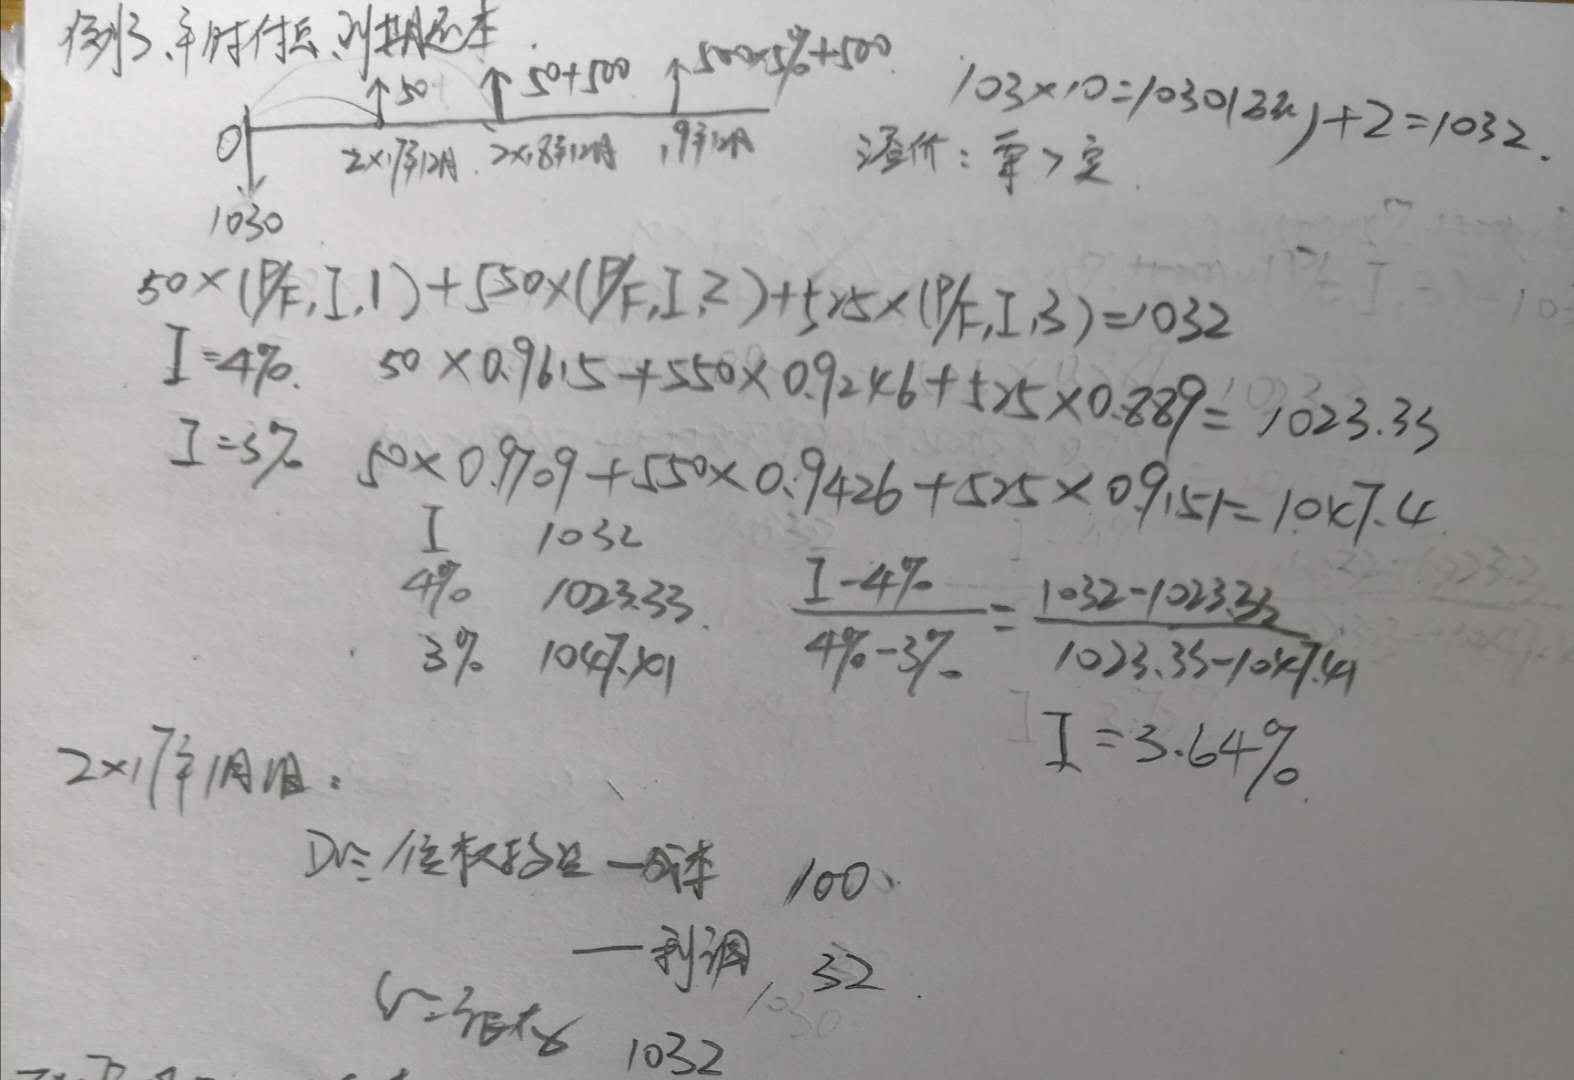 例3、年时付息、到期还本.
50 50+500 500×5%+500
103×10=1030(公允)+2=1032.
0 2×17年12月 2×18年12月 19年12月 溢价：票>实
1030
50×(P/F,I,1)+550×(P/F,I,2)+525×(P/F,I,3)=1032
I=4%. 50×0.9615+550×0.9246+525×0.889=1023.33
I=3% 50×0.9709+550×0.9426+525×0.9151=1047.4
I 1032
4% 1023.33 I-4% = 1032-1023.33
3% 1047.41 4%-3% 1023.33-1047.41
I=3.64%
2×17年1月1日：
Dr: 债权投资—成本 100
—利调 32
Cr: 银存 1032